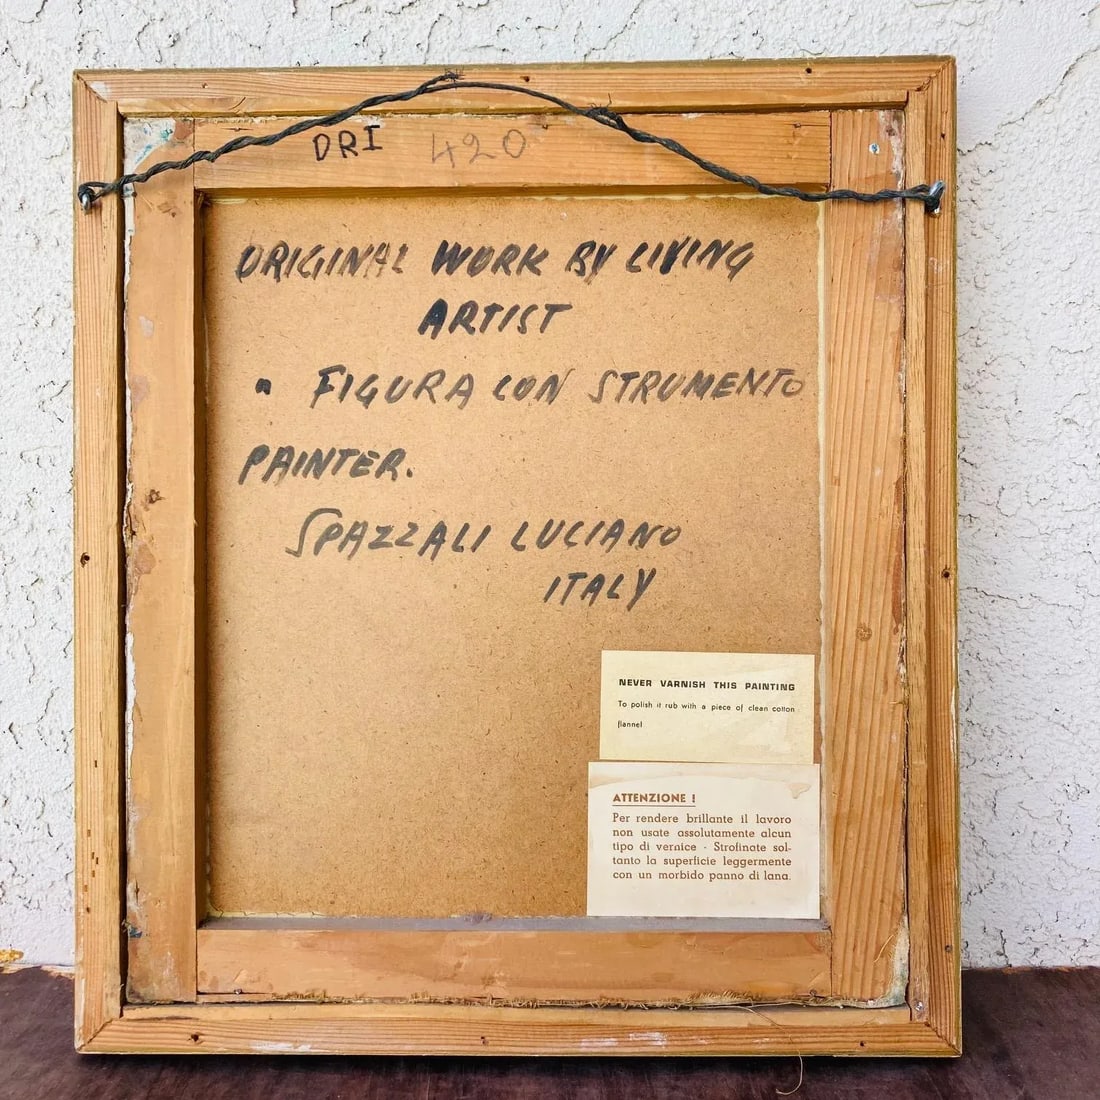 DRI 420
ORIGINAL WORK BY LIVING
ARTIST
" FIGURA CON STRUMENTO
PAINTER.
SPAZZALI LUCIANO
ITALY
NEVER VARNISH THIS PAINTING
To polish it rub with a piece of clean cotton
flannel
ATTENZIONE !
Per rendere brillante il lavoro
non usate assolutamente alcun
tipo di vernice - Strofinate sol-
tanto la superficie leggermente
con un morbido panno di lana.